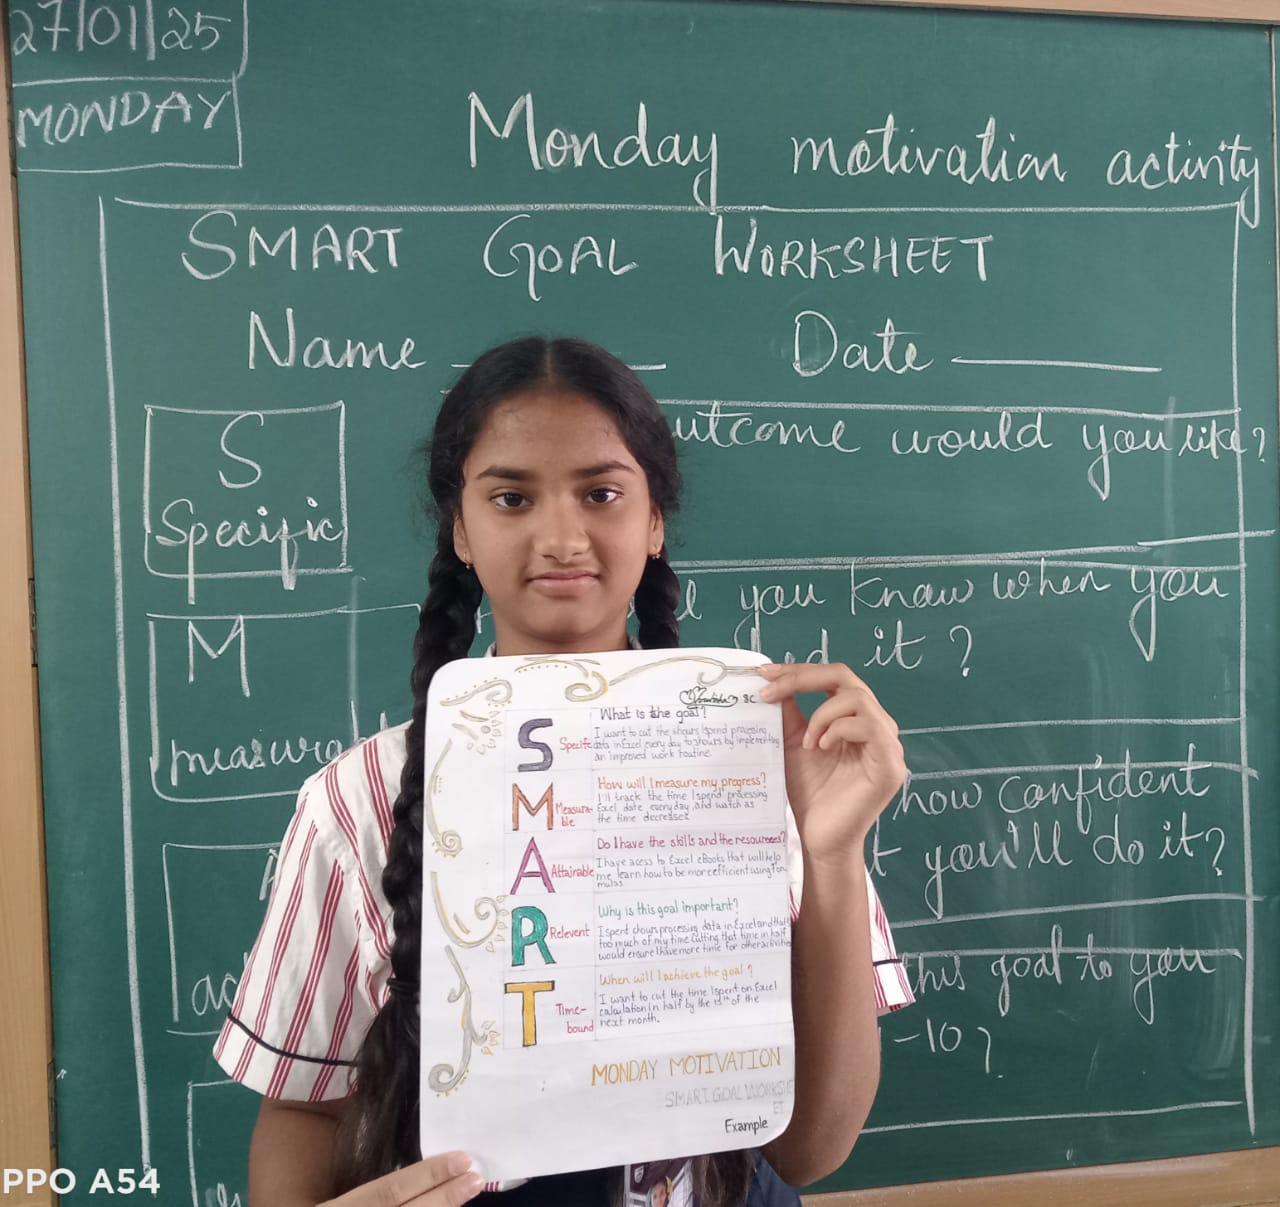 27/01/25
MONDAY
Monday motivation activity
SMART GOAL WORKSHEET
Name Date
S
Specific
utcome would you like?
M
you know when you
ed it?
how confident
t you'll do it?
this goal to you
-10?
8C
S
Specific
What is the goal?
I want to cut the hours I spend processing
data in Excel every day to hours by implementing
an improved work routine.
M
Measura-
ble
How will I measure my progress?
I'll track the time I spend processing
Excel date everyday, and watch as
the time decreases
A
Attainable
Do I have the skills and the
I have acess to Excel eBooks that will help
me learn how to be more efficient using for
mulas
R
Relevent
Why is this goal important?
I spent hours processing data in Excel and that
too much of my time Cutting that time in half
would ensure I have more time for other activities
T
Time-
bound
When will I achieve the goal?
I want to cut the time I spent on Excel
calculation in half by the 15th of the
next month.
MONDAY MOTIVATION
SMART GOAL WORKSHE
ET
Example
PPO A54